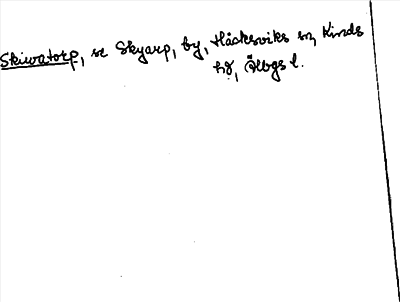 Skiwatorp, se Skyarp, by, Håcksviks sn, Kinds
hd, Älvgs l.